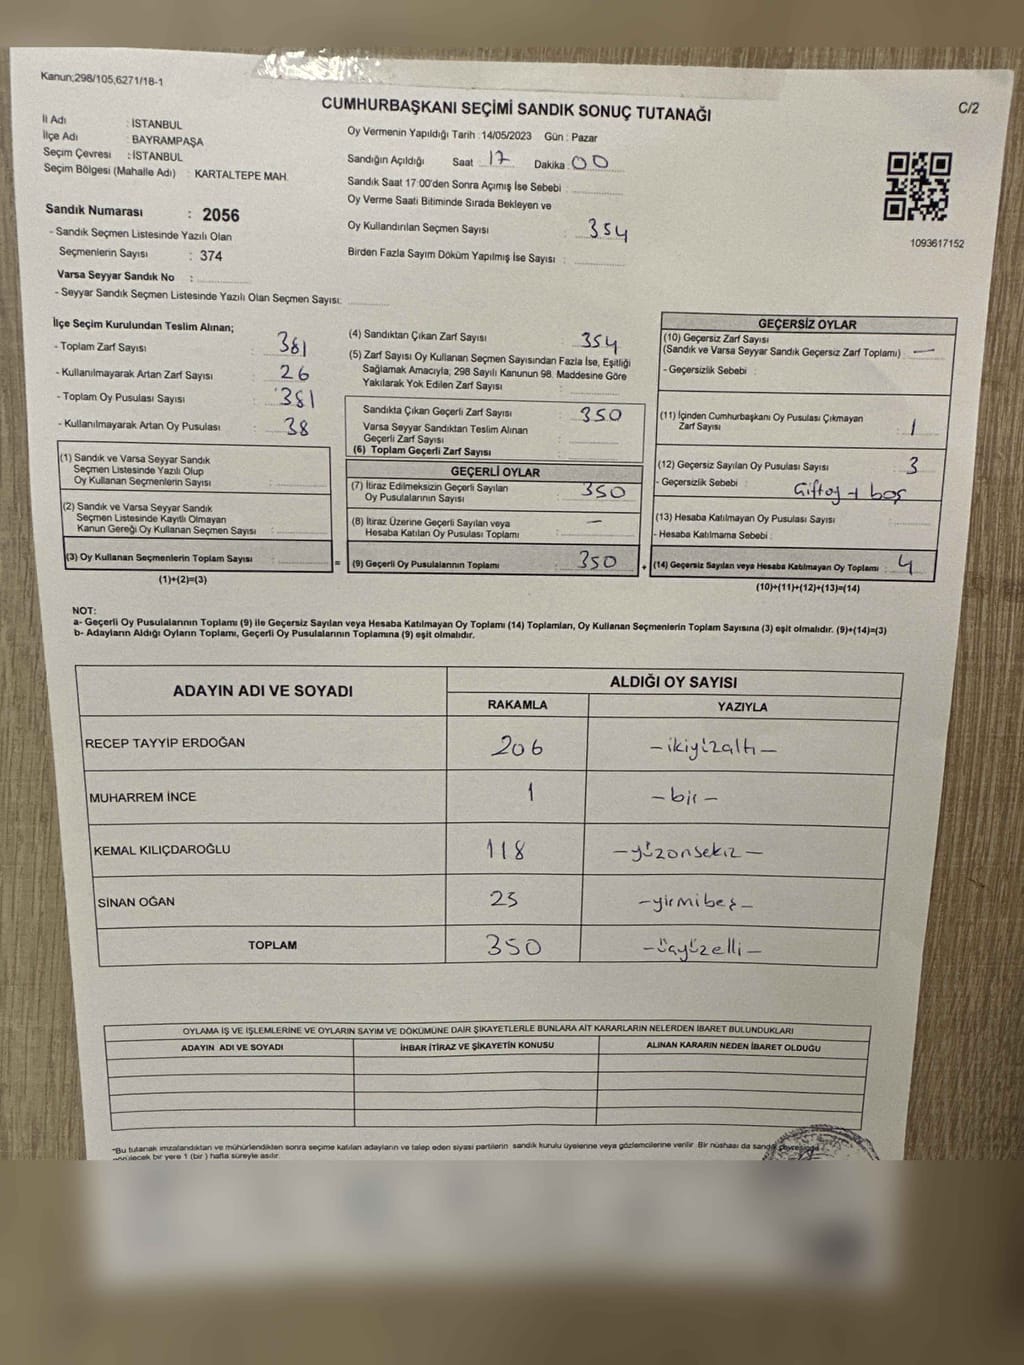 Kanun;298/105,6271/18-1
C/2
CUMHURBAŞKANI SEÇİMİ SANDIK SONUÇ TUTANAĞI
İl Adı : İSTANBUL
İlçe Adı : BAYRAMPAŞA
Seçim Çevresi : İSTANBUL
Seçim Bölgesi (Mahalle Adı) : KARTALTEPE MAH.
Sandık Numarası : 2056
- Sandık Seçmen Listesinde Yazılı Olan
Seçmenlerin Sayısı : 374
Varsa Seyyar Sandık No :
- Seyyar Sandık Seçmen Listesinde Yazılı Olan Seçmen Sayısı:
Oy Vermenin Yapıldığı Tarih : 14/05/2023 Gün : Pazar
Sandığın Açıldığı Saat 17 Dakika 00
Sandık Saat 17:00'den Sonra Açımış İse Sebebi :
Oy Verme Saati Bitiminde Sırada Bekleyen ve
Oy Kullandırılan Seçmen Sayısı : 354
Birden Fazla Sayım Döküm Yapılmış İse Sayısı :
1093617152
İlçe Seçim Kurulundan Teslim Alınan;
- Toplam Zarf Sayısı : 381
- Kullanılmayarak Artan Zarf Sayısı : 26
- Toplam Oy Pusulası Sayısı : 381
- Kullanılmayarak Artan Oy Pusulası : 38
(1) Sandık ve Varsa Seyyar Sandık
Seçmen Listesinde Yazılı Olup
Oy Kullanan Seçmenlerin Sayısı :
(2) Sandık ve Varsa Seyyar Sandık
Seçmen Listesinde Kayıtlı Olmayan
Kanun Gereği Oy Kullanan Seçmen Sayısı :
(3) Oy Kullanan Seçmenlerin Toplam Sayısı :
(1)+(2)=(3)
(4) Sandıktan Çıkan Zarf Sayısı : 354
(5) Zarf Sayısı Oy Kullanan Seçmen Sayısından Fazla İse, Eşitliği
Sağlamak Amacıyla; 298 Sayılı Kanunun 98. Maddesine Göre
Yakılarak Yok Edilen Zarf Sayısı :
Sandıkta Çıkan Geçerli Zarf Sayısı : 350
Varsa Seyyar Sandıktan Teslim Alınan
Geçerli Zarf Sayısı :
(6) Toplam Geçerli Zarf Sayısı :
GEÇERLİ OYLAR
(7) İtiraz Edilmeksizin Geçerli Sayılan
Oy Pusulalarının Sayısı : 350
(8) İtiraz Üzerine Geçerli Sayılan veya
Hesaba Katılan Oy Pusulası Toplamı : —
= (9) Geçerli Oy Pusulalarının Toplamı : 350
GEÇERSİZ OYLAR
(10) Geçersiz Zarf Sayısı
(Sandık ve Varsa Seyyar Sandık Geçersiz Zarf Toplamı) : —
- Geçersizlik Sebebi :
(11) İçinden Cumhurbaşkanı Oy Pusulası Çıkmayan
Zarf Sayısı : 1
(12) Geçersiz Sayılan Oy Pusulası Sayısı : 3
- Geçersizlik Sebebi : Çiftoy + boş
(13) Hesaba Katılmayan Oy Pusulası Sayısı :
- Hesaba Katılmama Sebebi :
+ (14) Geçersiz Sayılan veya Hesaba Katılmayan Oy Toplamı : 4
(10)+(11)+(12)+(13)=(14)
NOT:
a- Geçerli Oy Pusulalarının Toplamı (9) ile Geçersiz Sayılan veya Hesaba Katılmayan Oy Toplamı (14) Toplamları, Oy Kullanan Seçmenlerin Toplam Sayısına (3) eşit olmalıdır. (9)+(14)=(3)
b- Adayların Aldığı Oyların Toplamı, Geçerli Oy Pusulalarının Toplamına (9) eşit olmalıdır.
ADAYIN ADI VE SOYADI ALDIĞI OY SAYISI
RAKAMLA YAZIYLA
RECEP TAYYİP ERDOĞAN 206 –ikiyüzaltı–
MUHARREM İNCE 1 –bir–
KEMAL KILIÇDAROĞLU 118 –yüzonsekiz–
SİNAN OĞAN 25 –yirmibeş–
TOPLAM 350 –üçyüzelli–
OYLAMA İŞ VE İŞLEMLERİNE VE OYLARIN SAYIM VE DÖKÜMÜNE DAİR ŞİKAYETLERLE BUNLARA AİT KARARLARIN NELERDEN İBARET BULUNDUKLARI
ADAYIN ADI VE SOYADI İHBAR İTİRAZ VE ŞİKAYETİN KONUSU ALINAN KARARIN NEDEN İBARET OLDUĞU
"Bu tutanak imzalandıktan ve mühürlendikten sonra seçime katılan adayların ve talep eden siyasi partilerin sandık kurulu üyelerine veya gözlemcilerine verilir. Bir nüshası da sandık
görülecek bir yere 1 (bir) hafta süreyle asılır.